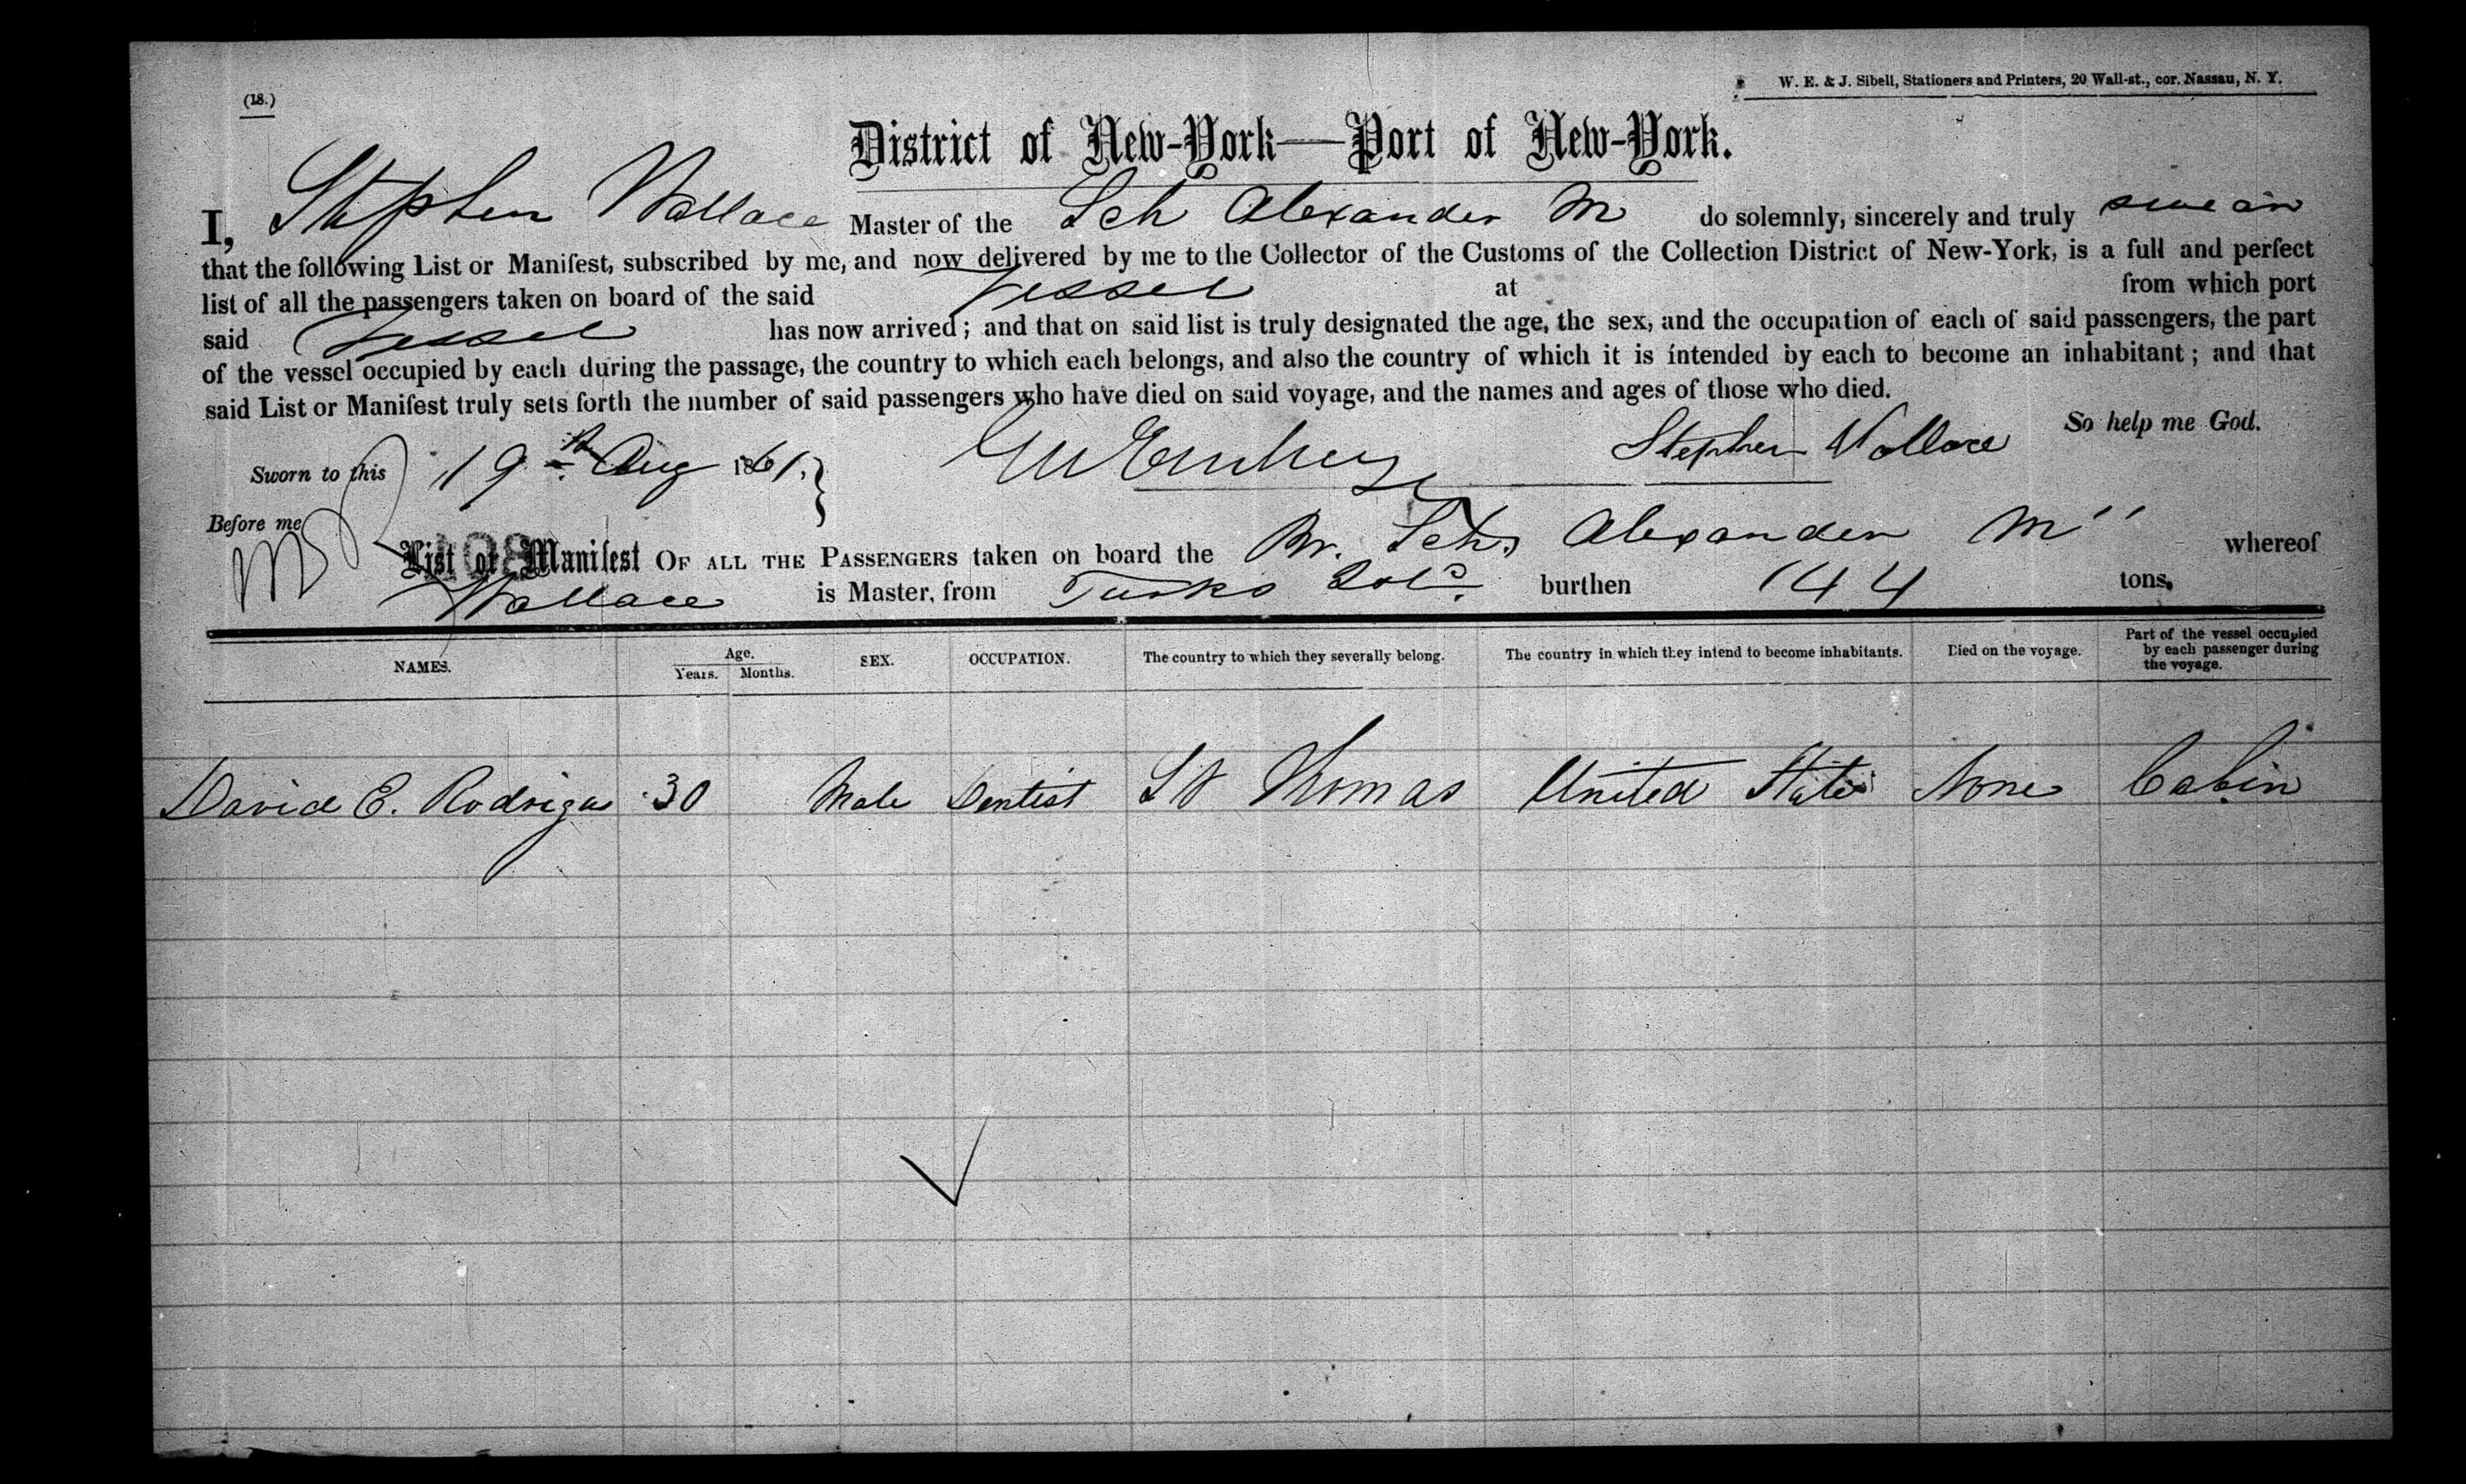 (18.)
W. E. & J. Sibell, Stationers and Printers, 20 Wall-st., cor. Nassau, N. Y.
District of New-York—Port of New-York.
I, Stephen Wallace Master of the Sch Alexander M do solemnly, sincerely and truly swear
that the following List or Manifest, subscribed by me, and now delivered by me to the Collector of the Customs of the Collection District of New-York, is a full and perfect
list of all the passengers taken on board of the said Vessel at from which port
said Vessel has now arrived; and that on said list is truly designated the age, the sex, and the occupation of each of said passengers, the part
of the vessel occupied by each during the passage, the country to which each belongs, and also the country of which it is intended by each to become an inhabitant; and that
said List or Manifest truly sets forth the number of said passengers who have died on said voyage, and the names and ages of those who died.
So help me God.
Sworn to this 19th Aug 1861. Stephen Wallace
Before me
List or Manifest OF ALL THE PASSENGERS taken on board the Br. Schr Alexander M" whereof
Wallace is Master, from Turks Isld. burthen 144 tons.
NAMES. Age. Years. Months. SEX. OCCUPATION. The country to which they severally belong. The country in which they intend to become inhabitants. Died on the voyage. Part of the vessel occupied by each passenger during the voyage.
David E. Rodrigas 30 Male Dentist St Thomas United States None Cabin